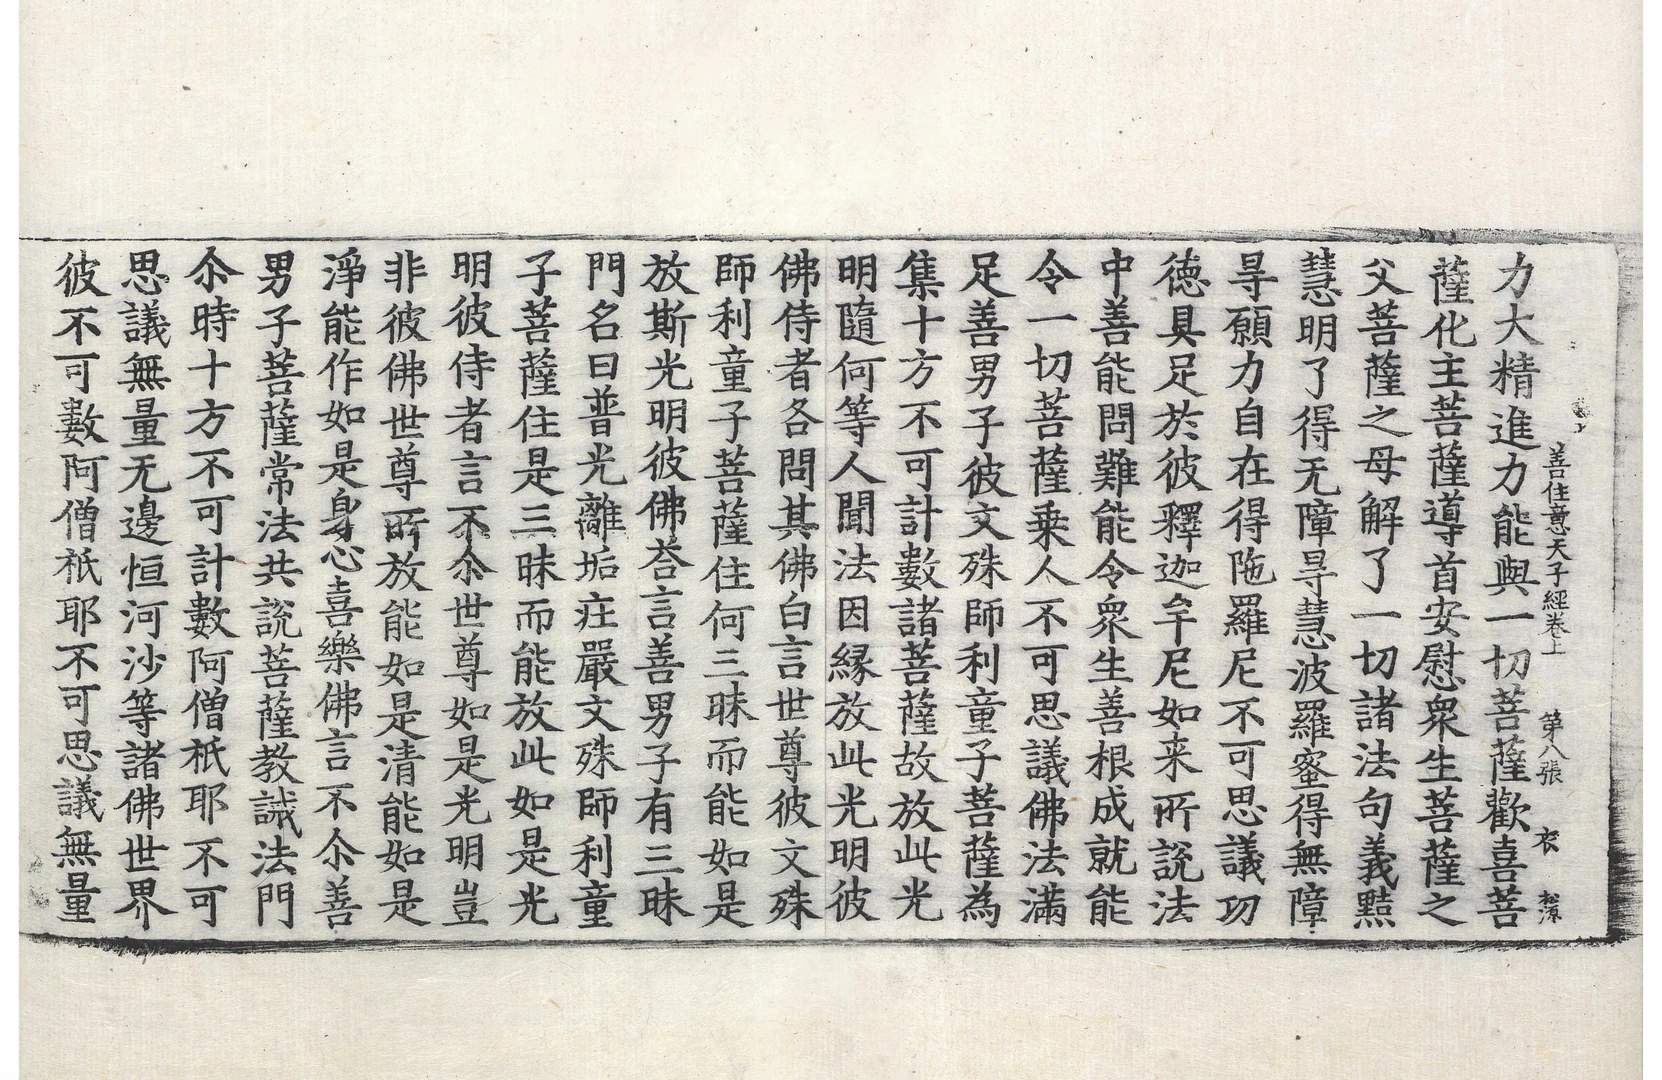 善住意天子經卷上 第八張 衣
力大精進力能與一切菩薩歡喜菩
薩化主菩薩導首安慰衆生菩薩之
父菩薩之母解了一切諸法句義黠
慧明了得无障㝵慧波羅蜜得無障
㝵願力自在得陁羅尼不可思議功
德具足於彼釋迦牟尼如来所說法
中善能問難能令衆生善根成就能
令一切菩薩乗人不可思議佛法滿
足善男子彼文殊師利童子菩薩為
集十方不可計數諸菩薩故放此光
明隨何等人聞法因縁放此光明彼
佛侍者各問其佛白言世尊彼文殊
師利童子菩薩住何三昧而能如是
放斯光明彼佛荅言善男子有三昧
門名曰普光離垢疘嚴文殊師利童
子菩薩住是三昧而能放此如是光
明彼侍者言不尒世尊如是光明豈
非彼佛世尊所放能如是清能如是
淨能作如是身心喜樂佛言不尒善
男子菩薩常法共説菩薩教誡法門
尒時十方不可計數阿僧祇耶不可
思議無量无邊恒河沙等諸佛世界
彼不可數阿僧祇耶不可思議無量